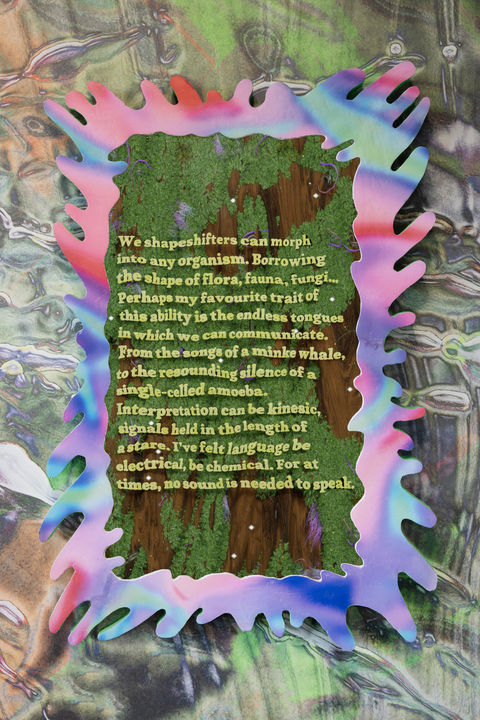 We shapeshifters can morph
into any organism. Borrowing
the shape of flora, fauna, fungi...
Perhaps my favourite trait of
this ability is the endless tongues
in which we can communicate.
From the song of a minke whale,
to the resounding silence of a
single-celled amoeba.
Interpretation can be kinesic,
signals held in the length of
a stare. I've felt language be
electrical, be chemical. For at
times, no sound is needed to speak.